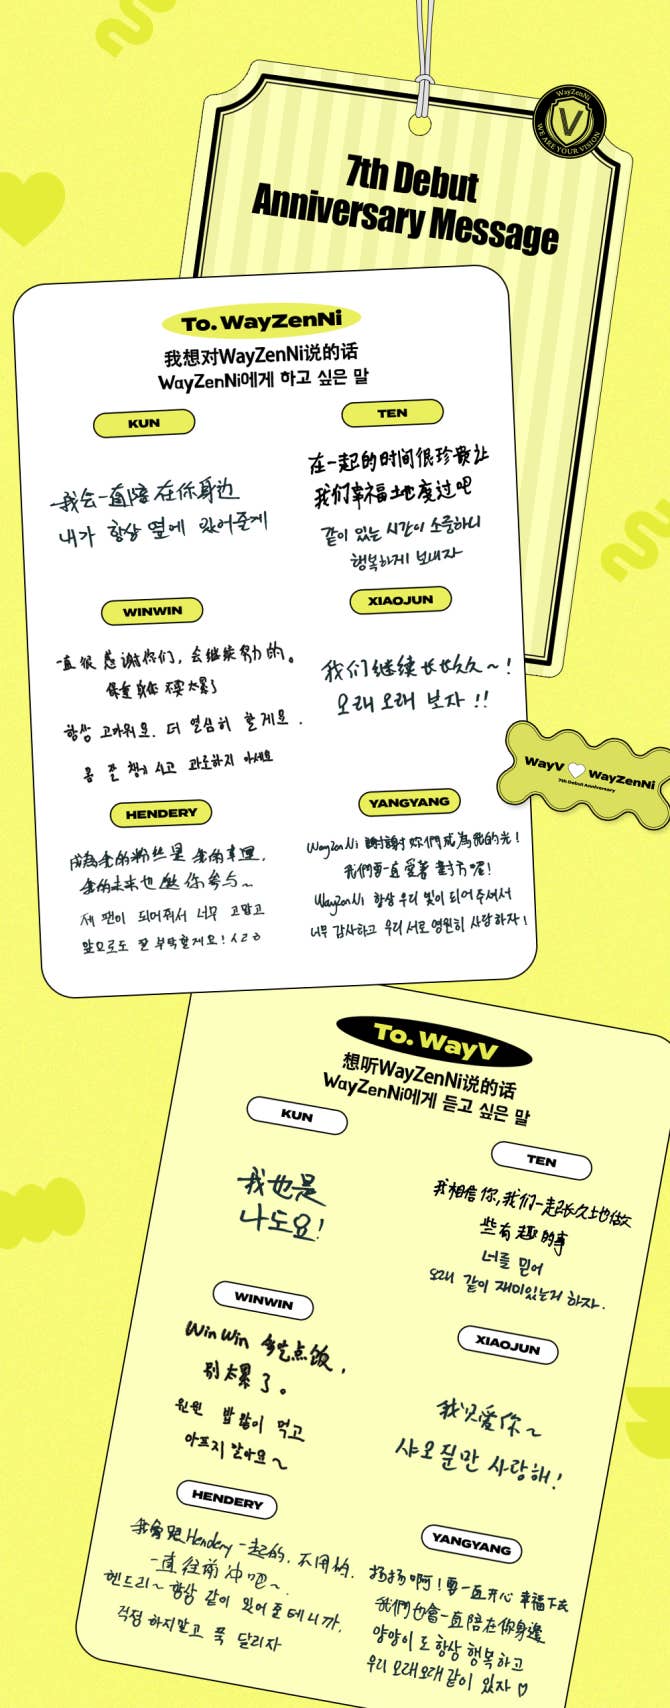 WayZenNi
V
WE ARE YOUR VISION
7th Debut
Anniversary Message
To. WayZenNi
我想对WayZenNi说的话
WayZenNi에게 하고 싶은 말
KUN
我会一直陪在你身边
내가 항상 옆에 있어줄게
TEN
在一起的时间很珍贵让
我们幸福土地度过吧
같이 있는 시간이 소중하니
행복하게 보내자
WINWIN
一直很感谢你们，会继续努力的。
保重身体 不要太累了
항상 고마워요. 더 열심히 할게요.
몸 잘 챙기시고 과로하지 마세요
XIAOJUN
我们继续长长久久~!
오래 오래 보자 !!
HENDERY
成為我的粉丝是 我的幸運,
我的未来也 你参与~
제 팬이 되어줘서 너무 고맙고
앞으로도 잘 부탁할게요! 123
YANGYANG
WayZenNi 謝謝妳們成為我的光!
我們要一直愛著對方喔!
WayZenNi 항상 우리 빛이 되어주셔서
너무 감사하고 우리 서로 영원히 사랑하자!
WayV WayZenNi
7th Debut Anniversary
To. WayV
想听WayZenNi说的话
WayZenNi에게 듣고 싶은 말
KUN
我也是
나도요!
TEN
我相信你,我们一起长久地做
些有趣的事
너를 믿어
오래 같이 재미있는거 하자.
WINWIN
WinWin 多吃点饭,
别太累了。
윈윈 밥 많이 먹고
아프지 말아요~
XIAOJUN
我只爱你~
샤오쥔만 사랑해!
HENDERY
我會跟Hendery一起的, 不用怕.
一直往前冲吧~.
헨드리~ 항상 같이 있어줄테니까,
걱정하지말고 푹 달리자
YANGYANG
扬扬啊!要一直开心幸福下去
我們也會一直陪在你身邊
양양이도 항상 행복하고
우리 오래오래 같이 있자♡